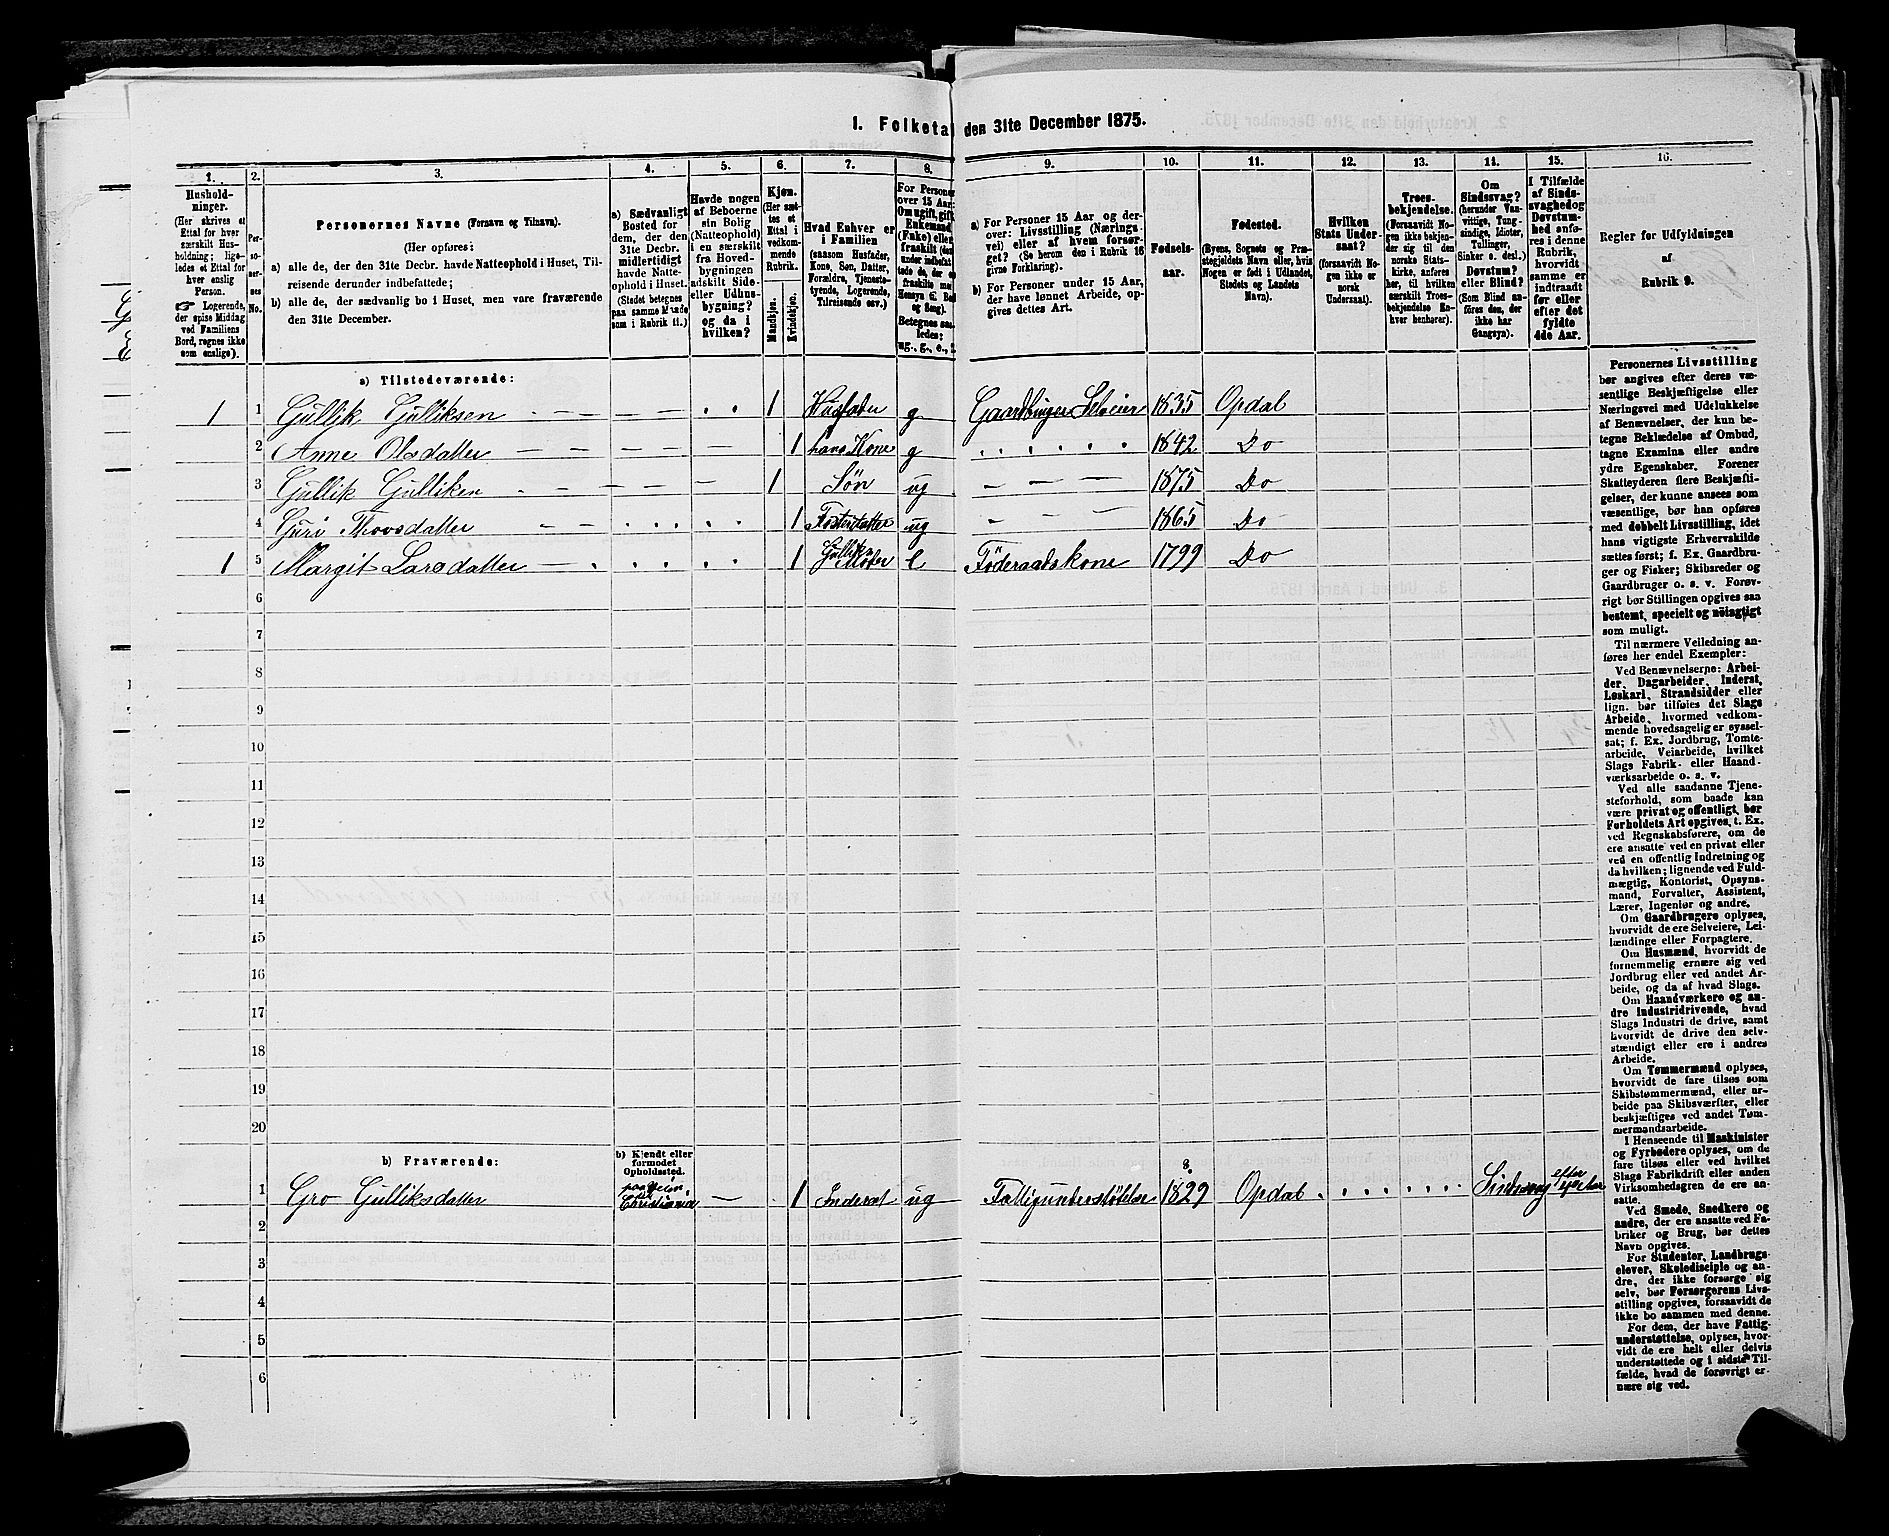 1. Folketal den 31te December 1875.
1.
2.
3.
4.
5.
6.
7.
8.
9.
10.
11.
12.
13.
14.
15.
16.
Hushold-
ninger.
(Her skrives et
Ettal for hver
særskilt Hus-
holdning; lige-
ledes et Ettal for
hver enslig
Person.
☞ Logerende,
der spise Middag
ved Familiens
Bord, regnes ikke
som enslige).
Per-
so-
ner-
nes
No.
Personernes Navne (Fornavn og Tilnavn).
(Her opføres:
a) alle de, der den 31te Decbr. havde Natteophold i Huset, Til-
reisende derunder indbefattede;
b) alle de, der sædvanlig bo i Huset, men vare fraværende
den 31te December.
a) Sædvanligt
Bosted for
dem, der den
31te Decbr.
midlertidigt
havde Natte-
ophold i Huset.
(Stedet betegnes
paa samme Maade
som i Rubrik 11.)
Havde nogen
af Beboerne
sin Bolig
(Natteophold)
i en særskilt
fra Hoved-
bygningen
adskilt Side-
eller Udhus-
bygning?
og da i
hvilken?
Kjøn.
(Her sæt-
tes et
Ettal i
vedkom-
mende
Rubrik.
Mandkjøn.
Kvindekjøn.
Hvad Enhver er
i Familien
(saasom Husfader,
Kone, Søn, Datter,
Forældre, Tjeneste-
tyende, Logerende,
Tilreisende osv.)
For Personer
over 15 Aar:
Om ugift, gift,
Enkemand
(Enke) eller
fraskilt
Betegnes saa-
ledes:
ug., g., e., f.
a) For Personer 15 Aar og der-
over: Livsstilling (Nærings-
vei) eller af hvem forsør-
get? (Se herom den i Rubrik 16
givne Forklaring).
b) For Personer under 15 Aar,
der have lønnet Arbeide, op-
gives dettes Art.
Fødsels-
aar.
Fødested.
(Byens, Sognets og Præ-
stegjeldets Navn eller, hvis
Nogen er født i Udlandet,
Stedets og Landets
Navn).
Hvilken
Stats Under-
saat?
(forsaavidt No-
gen ikke er
norsk
Undersaat).
Troes-
bekjendelse.
(Forsaavidt No-
gen ikke bekjen-
der sig til den
norske Stats-
kirke, anføres
her, til hvilken
særskilt Troes-
bekjendelse En-
hver henhører).
Om
Sindssvag?
(herunder Van-
vittige, Tung-
sindige, Idioter,
Tullinger,
Sinker o. desl.)
Døvstum?
eller Blind?
(Som Blind an-
føres den, der
ikke har
Gangsyn).
I Tilfælde
af Sinds-
svaghed og
Døvstum-
hed anfø-
res i denne
Rubrik,
hvorvidt
samme er
indtraadt
før eller
efter det
fyldte
4de Aar.
Regler før Udfyldningen
af
Rubrik 9.
a) Tilstedeværende:
1 1 Gullik Gulliksen 1 Husfader g Gaardbruger Selveier 1835 Opdal
2 Anne Olsdatter 1 hans Kone g 1842 Do
3 Gullik Gulliksen 1 Søn ug 1875 Do
4 Guri Thovsdatter 1 Fosterdatter ug 1865 Do
1 5 Margit Larsdatter 1 Gulliks Moder e Föderaadskone 1799 Do
6
7
8
9
10
11
12
13
14
15
16
17
18
19
20
b) Fraværende:
b) Kjendt eller
formodet
Opholdssted.
1 Gro Gulliksdatter Christiania 1 Inderst ug Fattigunderstöttelse 1829 Opdal Sindssvag efter
2
3
4
5
6
Personernes Livsstilling
bør angives efter deres væ-
sentlige Beskjæftigelse eller
Næringsvei med Udelukkelse
af Benævnelser, der kun be-
tegne Beklædelse af Ombud,
tagne Examina eller andre
ydre Egenskaber. Forener
Skatteyderen flere Beskjæfti-
gelser, der kunne ansees som
væsentlige, bør han opføres
med dobbelt Livsstilling, idet
hans vigtigste Erhvervskilde
sættes først; f. Ex. Gaardbru-
ger og Fisker; Skibsreder og
Gaardbruger o. s. v. Forøv-
rigt bør Stillingen opgives saa
bestemt, specielt og nøiagtigt
som muligt.
Til nærmere Veiledning an-
føres her endel Exempler:
Ved Benævnelserne: Arbei-
der, Dagarbeider, Inderst,
Løskarl, Strandsidder eller
lign. bør tilføies det Slags
Arbeide, hvormed vedkom-
mende hovedsagelig er syssel-
sat; f. Ex. Jordbrug, Tomte-
arbeide, Veiarbeide, hvilket
Slags Fabrik- eller Haand-
værksarbeide o. s. v.
Ved alle saadanne Tjene-
steforhold, som baade kan
være privat og offentligt, bør
Forholdets Art opgives, t. Ex.
ved Regnskabsførere, om de
ere ansatte ved en privat eller
ved en offentlig Indretning og
da hvilken; lignende ved Fuld-
mægtig, Kontorist, Opsyns-
mand, Forvalter, Assistent,
Lærer, Ingeniør og andre.
Om Gaardbrugere oplyses,
hvorvidt de ere Selveiere, Lei-
lændinge eller Forpagtere.
Om Husmænd, hvorvidt de
fornemmelig ernære sig ved
Jordbrug eller ved andet Ar-
beide, og da af hvad Slags.
Om Haandværkere og an-
dre Industridrivende, hvad
Slags Industri de drive, samt
hvorvidt de drive den selv-
stændigt eller ere i andres
Arbeide.
Om Tømmermænd oplyses,
hvorvidt de fare tilsøs som
Skibstømmermænd, eller ar-
beide paa Skibsværfter, eller
beskjæftiges ved andet Tøm-
mermandsarbeide.
I Henseende til Maskinister
og Fyrbødere oplyses, om de
fare tilsøs eller ved hvilket
Slags Fabrikdrift eller anden
Virksomhed de ere an-
satte.
Ved Smede, Snedkere og
andre, der ere ansatte ved Fa-
briker og Brug, bør dettes
Navn opgives.
For Studenter, Landbrugs-
elever, Skoledisciple og an-
dre, der ikke forsørge sig
selv, bør Forsørgerens Livs-
stilling opgives, forsaavidt de
ikke bo sammen med denne.
For dem, der have Fattig-
understøttelse, oplyses, hvor-
vidt de ere helt eller delvis
understøttede og i sidste Til-
fælde, hvad de forøvrigt er-
nære sig ved.